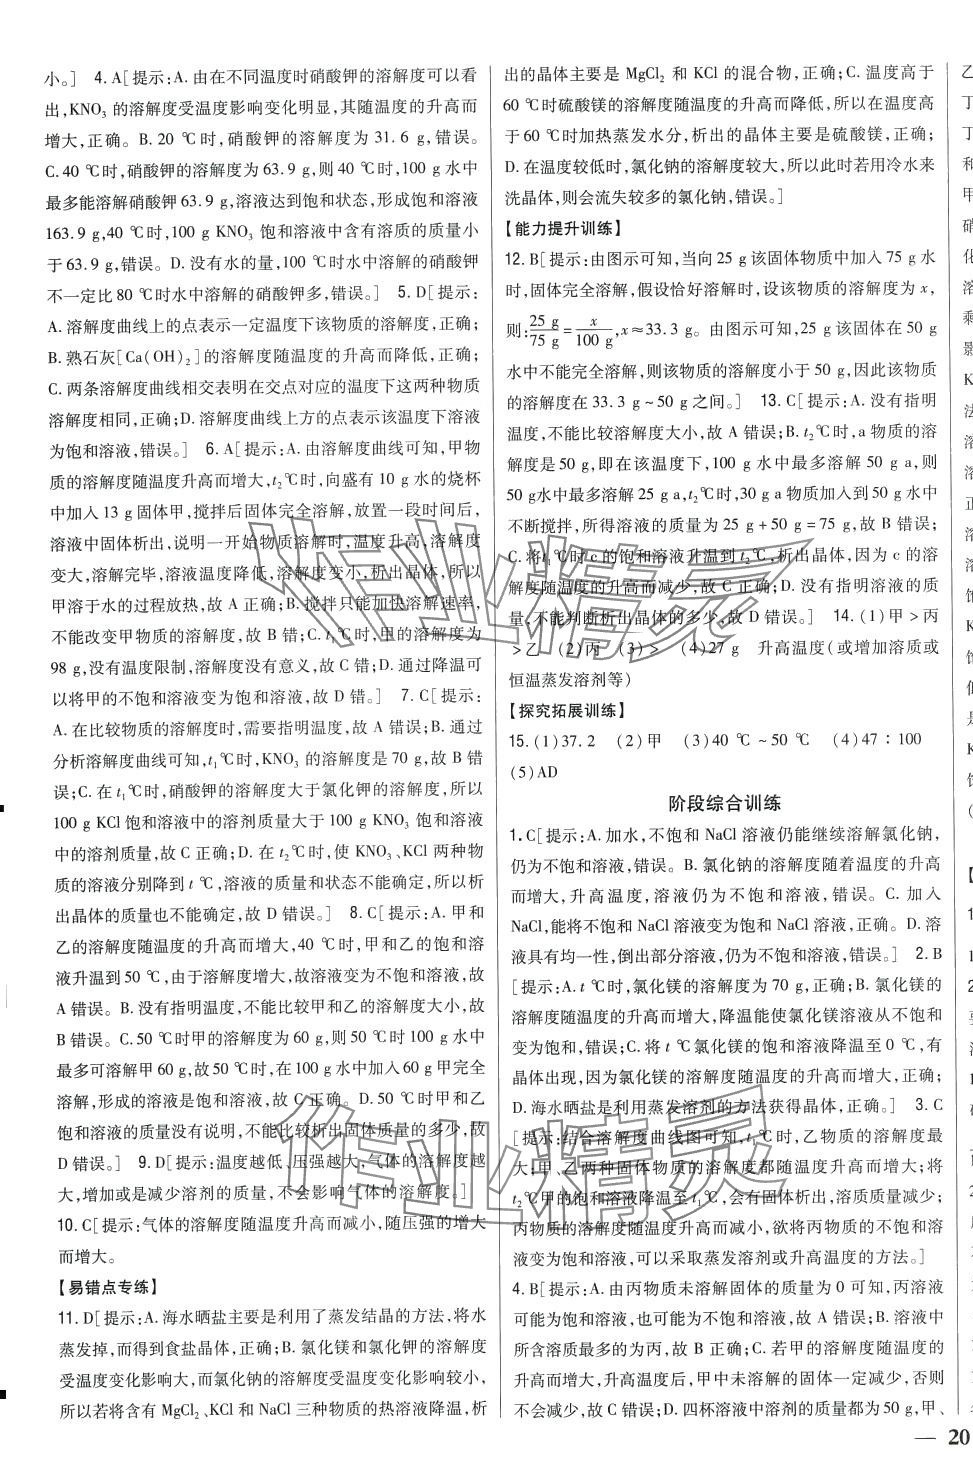 小。] 4. A[提示:A. 由在不同温度时硝酸钾的溶解度可以看
出,KNO₃ 的溶解度受温度影响变化明显,其随温度的升高而
增大,正确。B. 20 ℃时,硝酸钾的溶解度为 31. 6 g,错误。
C. 40 ℃时,硝酸钾的溶解度为 63. 9 g,则 40 ℃时,100 g 水中
最多能溶解硝酸钾 63. 9 g,溶液达到饱和状态,形成饱和溶液
163. 9 g,40 ℃时,100 g KNO₃ 饱和溶液中含有溶质的质量小
于 63. 9 g,错误。D. 没有水的量,100 ℃时水中溶解的硝酸钾
不一定比 80 ℃时水中溶解的硝酸钾多,错误。] 5. D[提示:
A. 溶解度曲线上的点表示一定温度下该物质的溶解度,正确;
B. 熟石灰[Ca(OH)₂]的溶解度随温度的升高而降低,正确;
C. 两条溶解度曲线相交表明在交点对应的温度下这两种物质
溶解度相同,正确;D. 溶解度曲线上方的点表示该温度下溶液
为饱和溶液,错误。] 6. A[提示:A. 由溶解度曲线可知,甲物
质的溶解度随温度升高而增大,t₂℃时,向盛有 10 g 水的烧杯
中加入 13 g 固体甲,搅拌后固体完全溶解,放置一段时间后,
溶液中固体析出,说明一开始物质溶解时,温度升高,溶解度
变大,溶解完毕,溶液温度降低,溶解度变小,析出晶体,所以
甲溶于水的过程放热,故 A 正确;B. 搅拌只能加快溶解速率,
不能改变甲物质的溶解度,故 B 错;C. t₁℃时,甲的溶解度为
98 g,没有温度限制,溶解度没有意义,故 C 错;D. 通过降温可
以将甲的不饱和溶液变为饱和溶液,故 D 错。] 7. C[提示:
A. 在比较物质的溶解度时,需要指明温度,故 A 错误;B. 通过
分析溶解度曲线可知,t₁℃时,KNO₃ 的溶解度是 70 g,故 B 错
误;C. 在 t₁℃时,硝酸钾的溶解度大于氯化钾的溶解度,所以
100 g KCl 饱和溶液中的溶剂质量大于 100 g KNO₃ 饱和溶液
中的溶剂质量,故 C 正确;D. 在 t₂℃时,使 KNO₃、KCl 两种物
质的溶液分别降到 t ℃,溶液的质量和状态不能确定,所以析
出晶体的质量也不能确定,故 D 错误。] 8. C[提示:A. 甲和
乙的溶解度随温度的升高而增大,40 ℃时,甲和乙的饱和溶
液升温到 50 ℃,由于溶解度增大,故溶液变为不饱和溶液,故
A 错误。B. 没有指明温度,不能比较甲和乙的溶解度大小,故
B 错误。C. 50 ℃时甲的溶解度为 60 g,则 50 ℃时 100 g 水中
最多可溶解甲 60 g,故 50 ℃时,在 100 g 水中加入 60 g 甲完全
溶解,形成的溶液是饱和溶液,故 C 正确。D. 50 ℃时甲和乙
饱和溶液的质量没有说明,不能比较析出固体质量的多少,故
D 错误。] 9. D[提示:温度越低、压强越大,气体的溶解度越
大,增加或是减少溶剂的质量,不会影响气体的溶解度。]
10. C[提示:气体的溶解度随温度升高而减小,随压强的增大
而增大。
【易错点专练】
11. D[提示:A. 海水晒盐主要是利用了蒸发结晶的方法,将水
蒸发掉,而得到食盐晶体,正确;B. 氯化镁和氯化钾的溶解度
受温度变化影响大,而氯化钠的溶解度受温度变化影响较小,
所以若将含有 MgCl₂、KCl 和 NaCl 三种物质的热溶液降温,析
出的晶体主要是 MgCl₂ 和 KCl 的混合物,正确;C. 温度高于
60 ℃时硫酸镁的溶解度随温度的升高而降低,所以在温度高
于 60 ℃时加热蒸发水分,析出的晶体主要是硫酸镁,正确;
D. 在温度较低时,氯化钠的溶解度较大,所以此时若用冷水来
洗晶体,则会流失较多的氯化钠,错误。]
【能力提升训练】
12. B[提示:由图示可知,当向 25 g 该固体物质中加入 75 g 水
时,固体完全溶解,假设恰好溶解时,设该物质的溶解度为 x,
则:25 g/75 g = x/100 g,x≈33. 3 g。由图示可知,25 g 该固体在 50 g
水中不能完全溶解,则该物质的溶解度小于 50 g,因此该物质
的溶解度在 33. 3 g ~ 50 g 之间。] 13. C[提示:A. 没有指明
温度,不能比较溶解度大小,故 A 错误;B. t₂℃时,a 物质的溶
解度是 50 g,即在该温度下,100 g 水中最多溶解 50 g a,则
50 g水中最多溶解 25 g a,t₂℃时,30 g a 物质加入到 50 g 水中
不断搅拌,所得溶液的质量为 25 g + 50 g = 75 g,故 B 错误;
C. 将 t₁℃时 c 的饱和溶液升温到 t₂℃,析出晶体,因为 c 的溶
解度随温度的升高而减少,故 C 正确;D. 没有指明溶液的质
量,不能判断析出晶体的多少,故 D 错误。] 14. (1)甲 > 丙
> 乙 (2)丙 (3)> (4)27 g 升高温度(或增加溶质或
恒温蒸发溶剂等)
【探究拓展训练】
15. (1)37. 2 (2)甲 (3)40 ℃ ~ 50 ℃ (4)47 : 100
(5)AD
阶段综合训练
1. C[提示:A. 加水,不饱和 NaCl 溶液仍能继续溶解氯化钠,
仍为不饱和溶液,错误。B. 氯化钠的溶解度随着温度的升高
而增大,升高温度,溶液仍为不饱和溶液,错误。C. 加入
NaCl,能将不饱和 NaCl 溶液变为饱和 NaCl 溶液,正确。D. 溶
液具有均一性,倒出部分溶液,仍为不饱和溶液,错误。] 2. B
[提示:A. t ℃时,氯化镁的溶解度为 70 g,正确;B. 氯化镁的
溶解度随温度的升高而增大,降温能使氯化镁溶液从不饱和
变为饱和,错误;C. 将 t ℃氯化镁的饱和溶液降温至 0 ℃,有
晶体出现,因为氯化镁的溶解度随温度的升高而增大,正确;
D. 海水晒盐是利用蒸发溶剂的方法获得晶体,正确。] 3. C
[提示:结合溶解度曲线图可知,t₁℃时,乙物质的溶解度最
大;甲、乙两种固体物质的溶解度都随温度升高而增大;将
t₂℃甲的饱和溶液降温至 t₁℃,会有固体析出,溶质质量减少;
丙物质的溶解度随温度升高而减小,欲将丙物质的不饱和溶
液变为饱和溶液,可以采取蒸发溶剂或升高温度的方法。]
4. B[提示:A. 由丙物质未溶解固体的质量为 0 可知,丙溶液
可能为饱和溶液,也可能为不饱和溶液,故 A 错误;B. 溶液中
所含溶质最多的为丙,故 B 正确;C. 若甲的溶解度随温度的
升高而增大,升高温度后,甲中未溶解的固体一定减少,否则
不会减少,故 C 错误;D. 四杯溶液中溶剂的质量都为 50 g,甲、
— 20
作业精灵
作业精灵